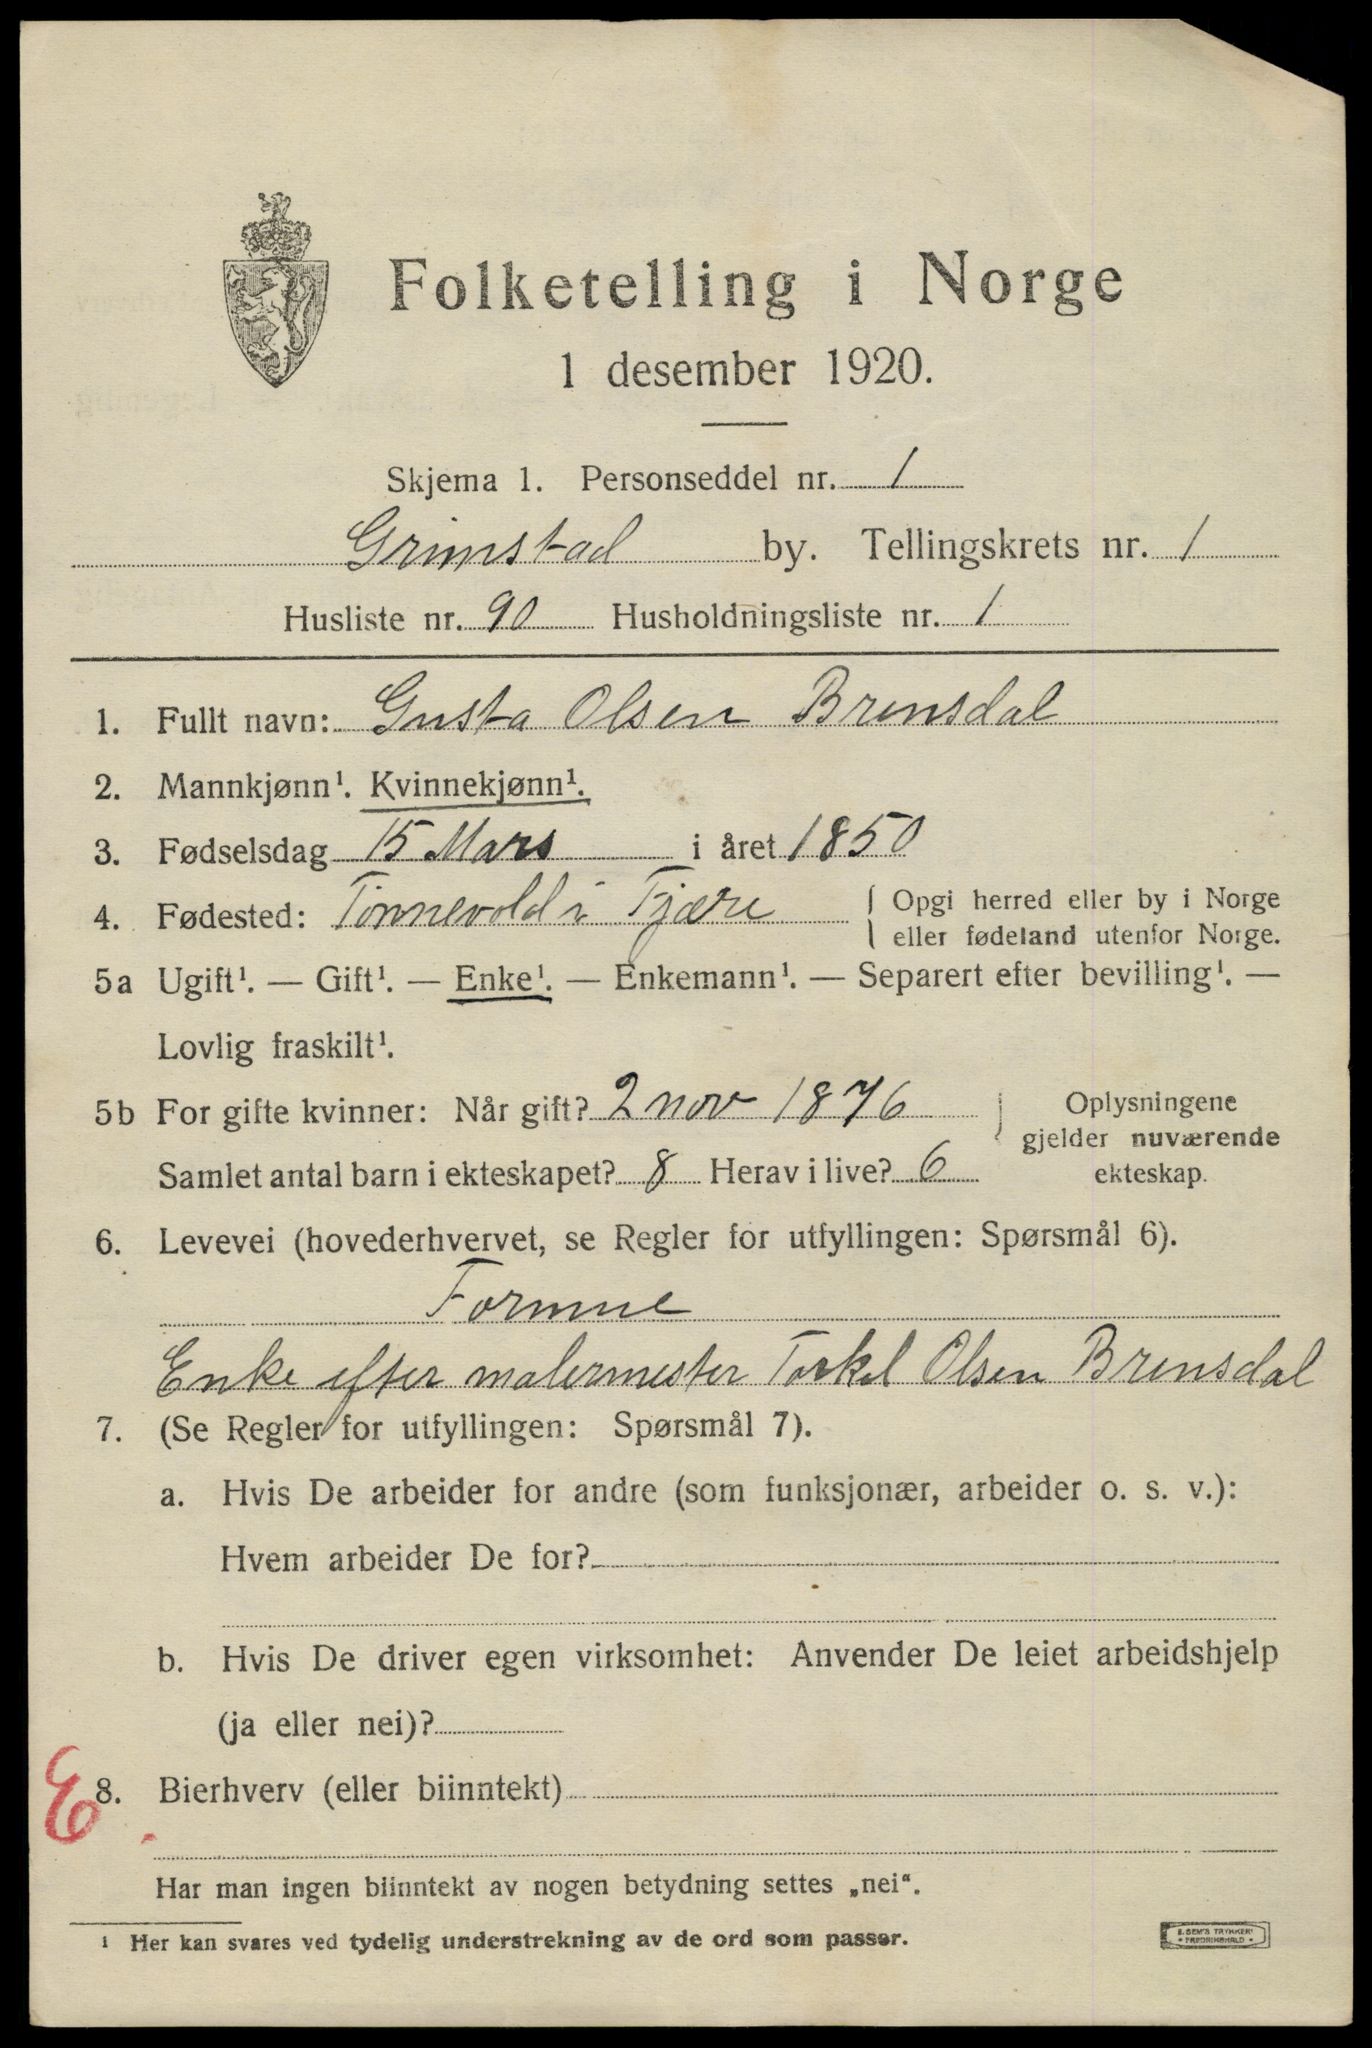 Folketelling i Norge
1 desember 1920.
Skjema 1. Personseddel nr. 1
Grimstad by. Tellingskrets nr. 1
Husliste nr. 90 Husholdningsliste nr. 1
1. Fullt navn: Gusta Olsen Brensdal
2. Mannkjønn¹. Kvinnekjønn¹.
3. Fødselsdag 15 Mars i året 1850
4. Fødested: Tönnevold i Fjære { Opgi herred eller by i Norge
eller fødeland utenfor Norge.
5a Ugift¹. — Gift¹. — Enke¹. — Enkemann¹. — Separert efter bevilling¹. —
Lovlig fraskilt¹.
5b For gifte kvinner: Når gift? 2 nov 1876
Samlet antal barn i ekteskapet? 8 Herav i live? 6
Oplysningene
gjelder nuværende
ekteskap.
6. Levevei (hovederhvervet, se Regler for utfyllingen: Spørsmål 6).
Formue
Enke efter malermester Torkel Olsen Brensdal
7. (Se Regler for utfyllingen: Spørsmål 7).
a. Hvis De arbeider for andre (som funksjonær, arbeider o. s. v.):
Hvem arbeider De for?
b. Hvis De driver egen virksomhet: Anvender De leiet arbeidshjelp
(ja eller nei)?
E
8. Bierhverv (eller biinntekt)
Har man ingen biinntekt av nogen betydning settes „nei“.
¹ Her kan svares ved tydelig understrekning av de ord som passer.
E. SEM'S TRYKKERI
• FREDRIKSHALD •